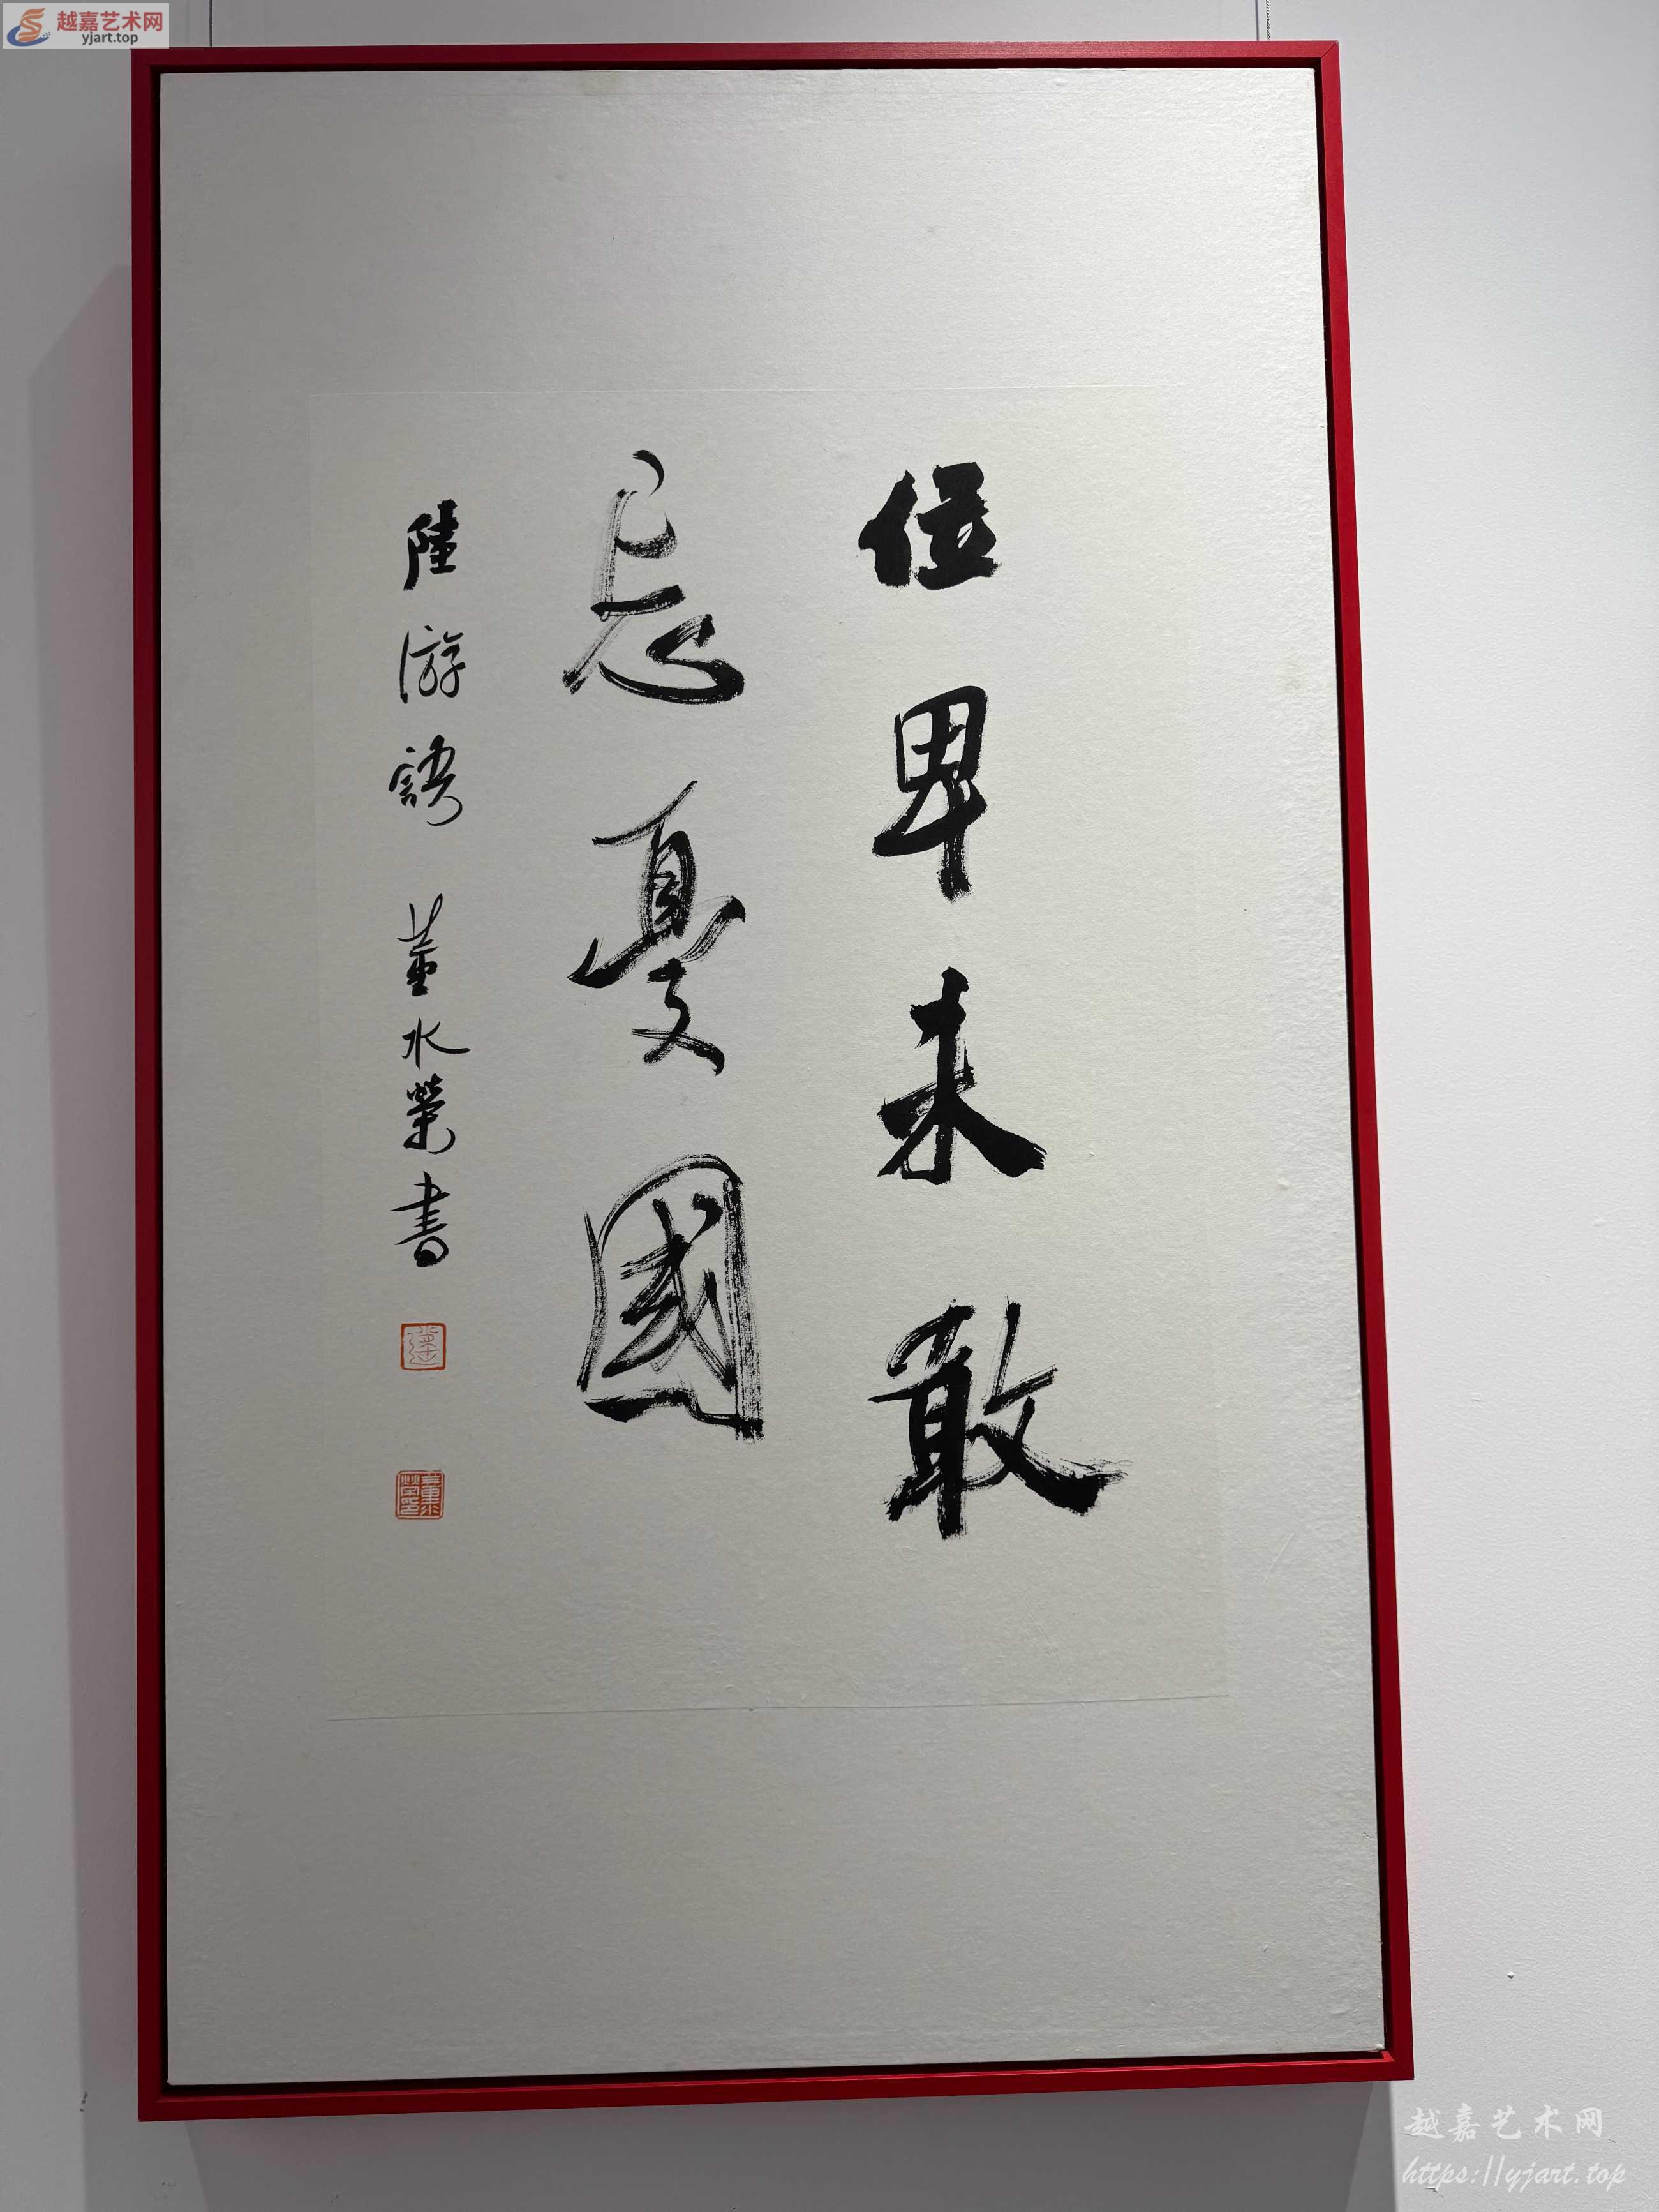 越嘉艺术网
yjart.top
位卑未敢
忘憂國
陸游語 董水榮書
董水榮印
越嘉艺术网
https://yjart.top